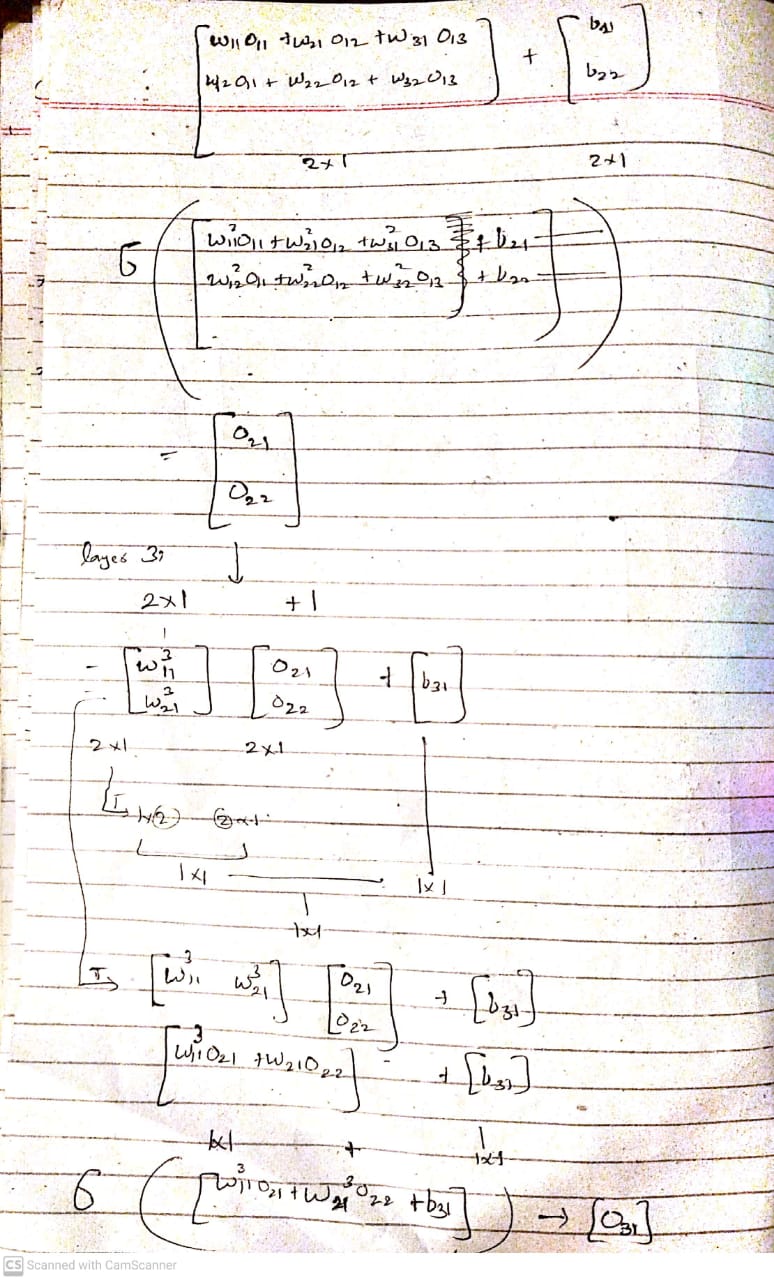 [ w11 O11 + w21 O12 + w31 O13 ] + [ b21 ]
[ w12 O11 + w22 O12 + w32 O13 ] [ b22 ]
2×1 2×1
σ ( [ w²11 O11 + w²21 O12 + w²31 O13 + b21 ] )
[ w²12 O11 + w²22 O12 + w²32 O13 + b22 ]
= [ O21 ]
[ O22 ]
layer 3: ↓
2×1 + 1
= [ w³11 ] [ O21 ] + [ b31 ]
[ w³21 ] [ O22 ]
2×1 2×1
T 1×2 2×1
1×1 1×1
1×1
T [ w³11 w³21 ] [ O21 ] + [ b31 ]
[ O22 ]
[ w³11 O21 + w21 O22 ] + [ b31 ]
1×1 + 1×1
σ ( [ w³11 O21 + w³21 O22 + b31 ] ) → [ O31 ]
CS Scanned with CamScanner